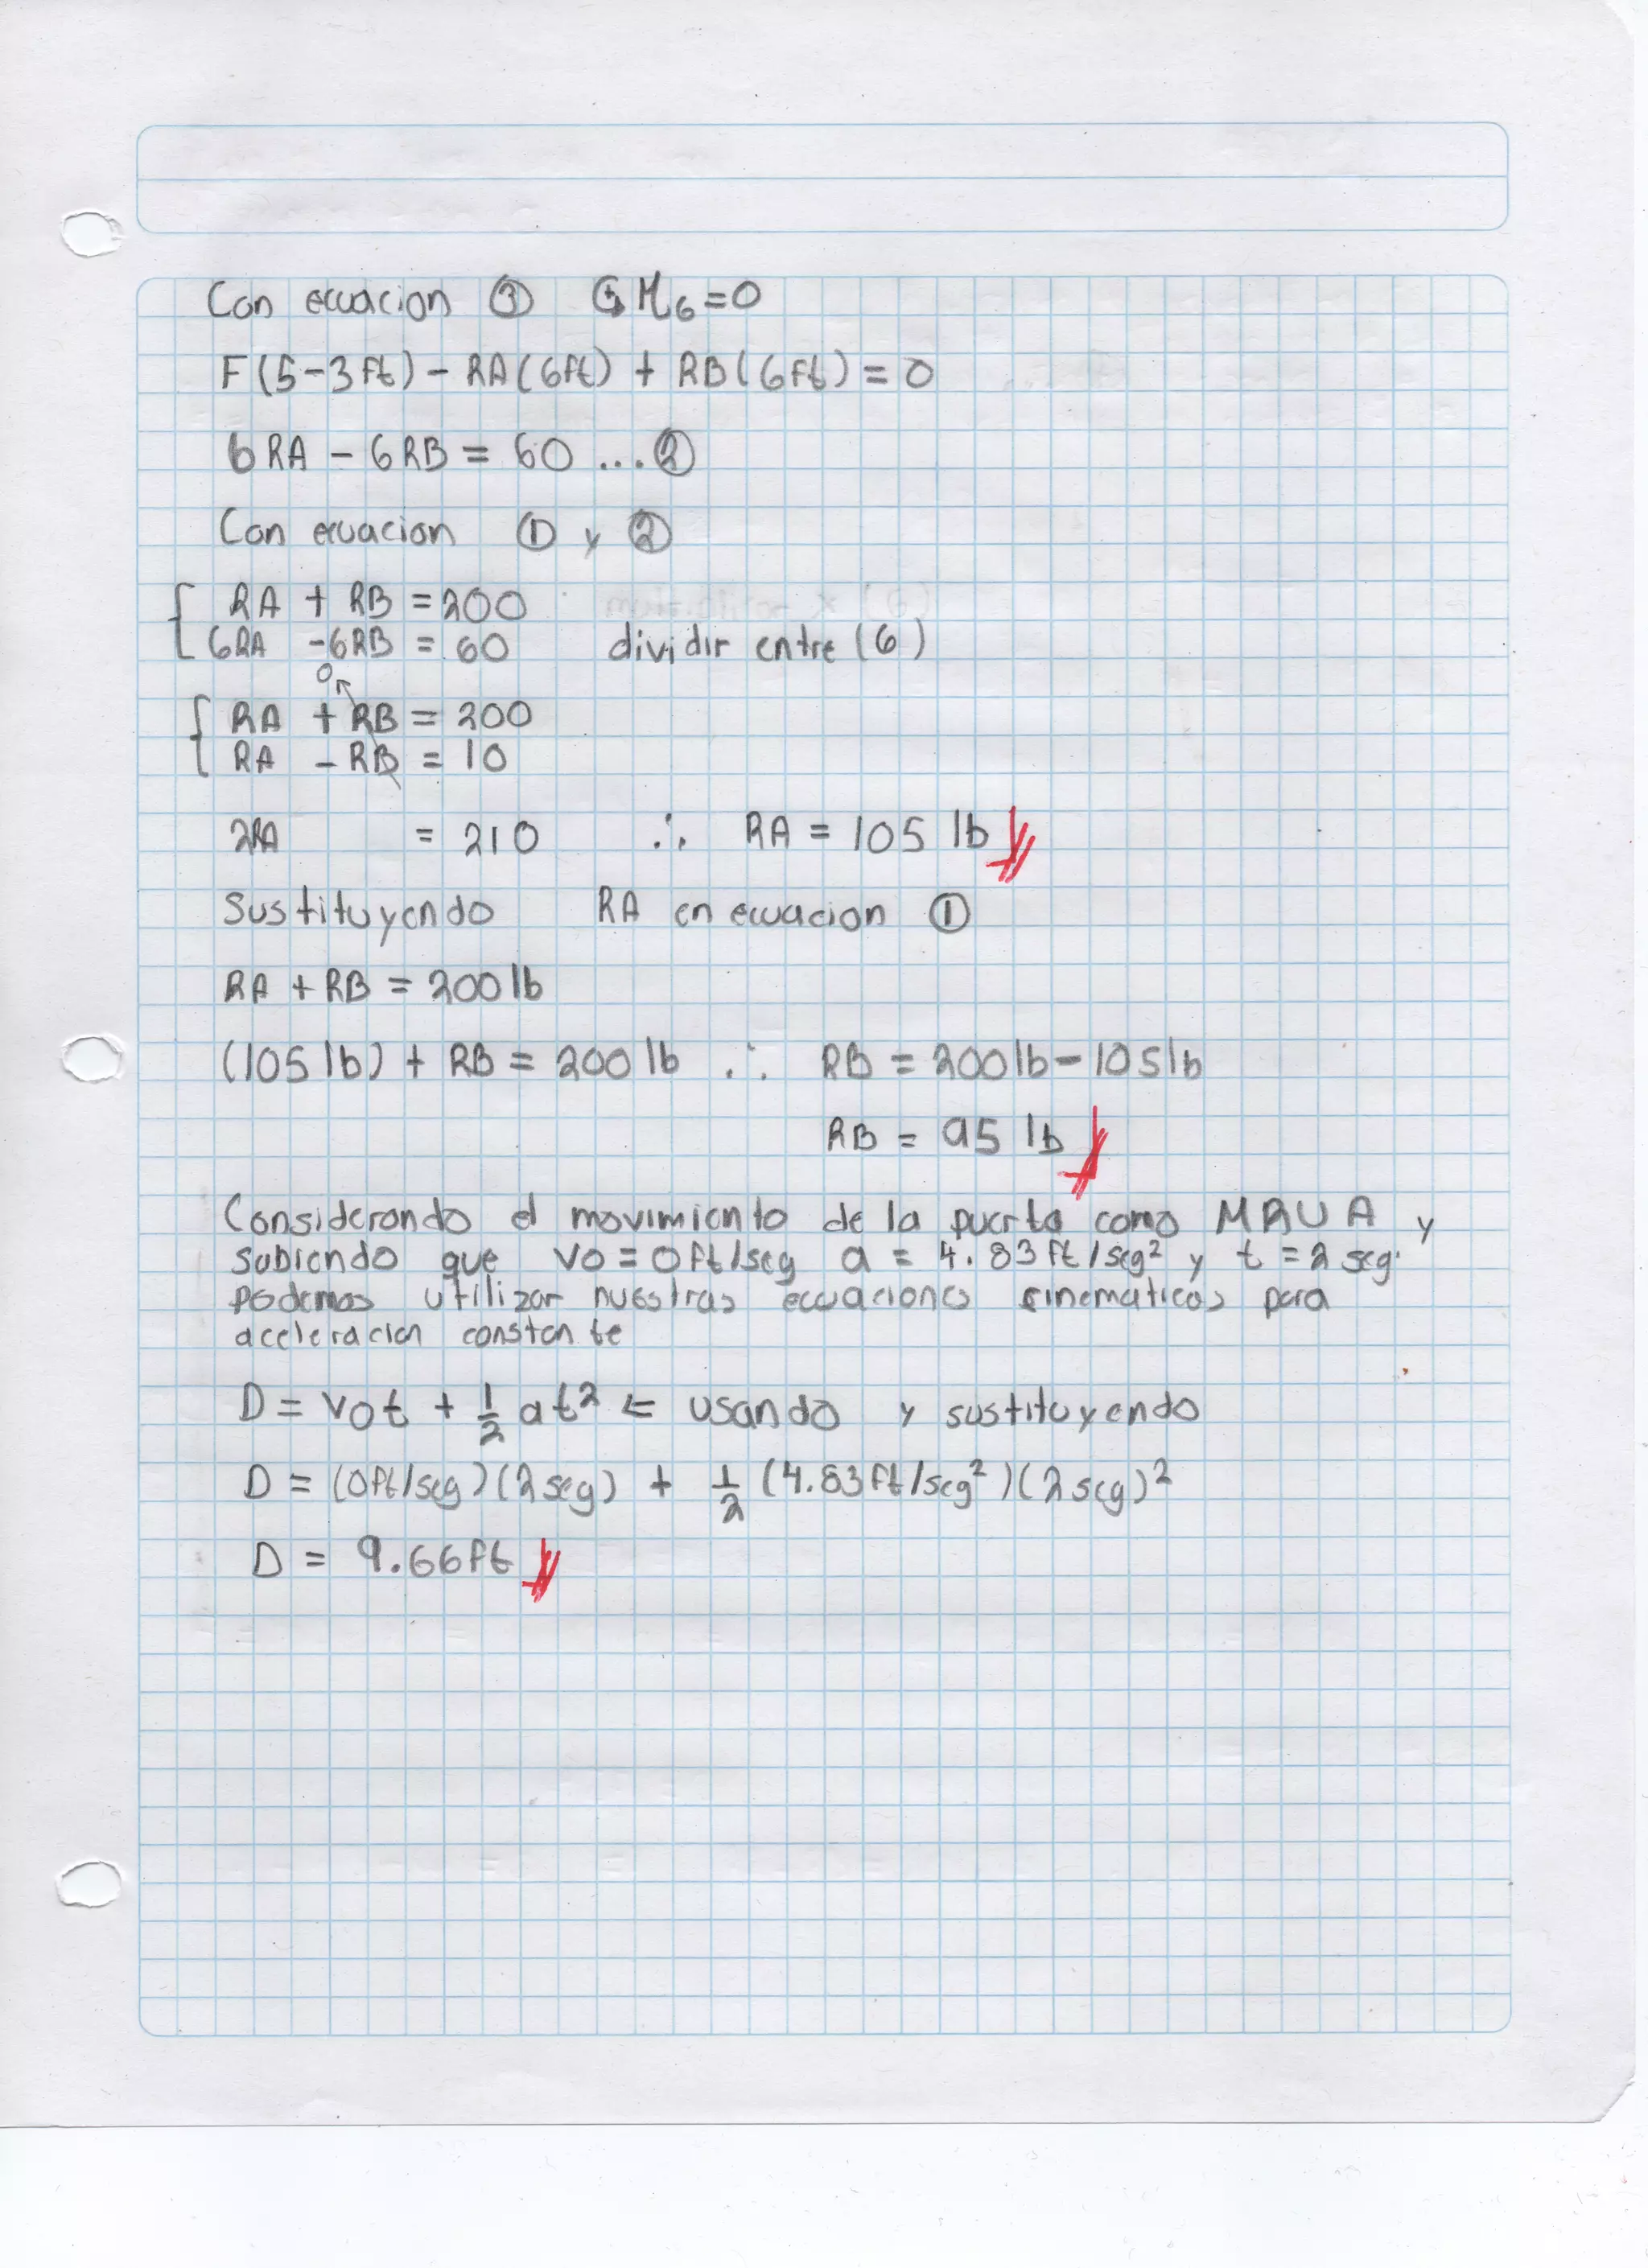 Con ecuacion ③ ↺+ M6=0
F(5-3ft) - RA(6ft) + RB(6ft) = 0
6RA - 6RB = 60 ...②
Con ecuacion ① y ②
RA + RB = 200
6RA -6RB = 60 dividir entre (6)
0
RA + RB = 200
RA - RB = 10
2RA = 210 ∴ RA = 105 lb
Sustituyendo RA en ecuacion ①
RA + RB = 200 lb
(105 lb) + RB = 200 lb ∴ RB = 200lb - 105lb
RB = 95 lb
Considerando el movimiento de la puerta como MRUA y
sabiendo que Vo = 0ft/seg a = 4.83 ft/seg² y t = 2 seg.
Podemos utilizar nuestras ecuaciones cinematicas para
aceleracion constante
D = Vot + 1/2 at² ⇐ usando y sustituyendo
D = (0ft/seg)(2seg) + 1/2 (4.83ft/seg²)(2seg)²
D = 9.66ft